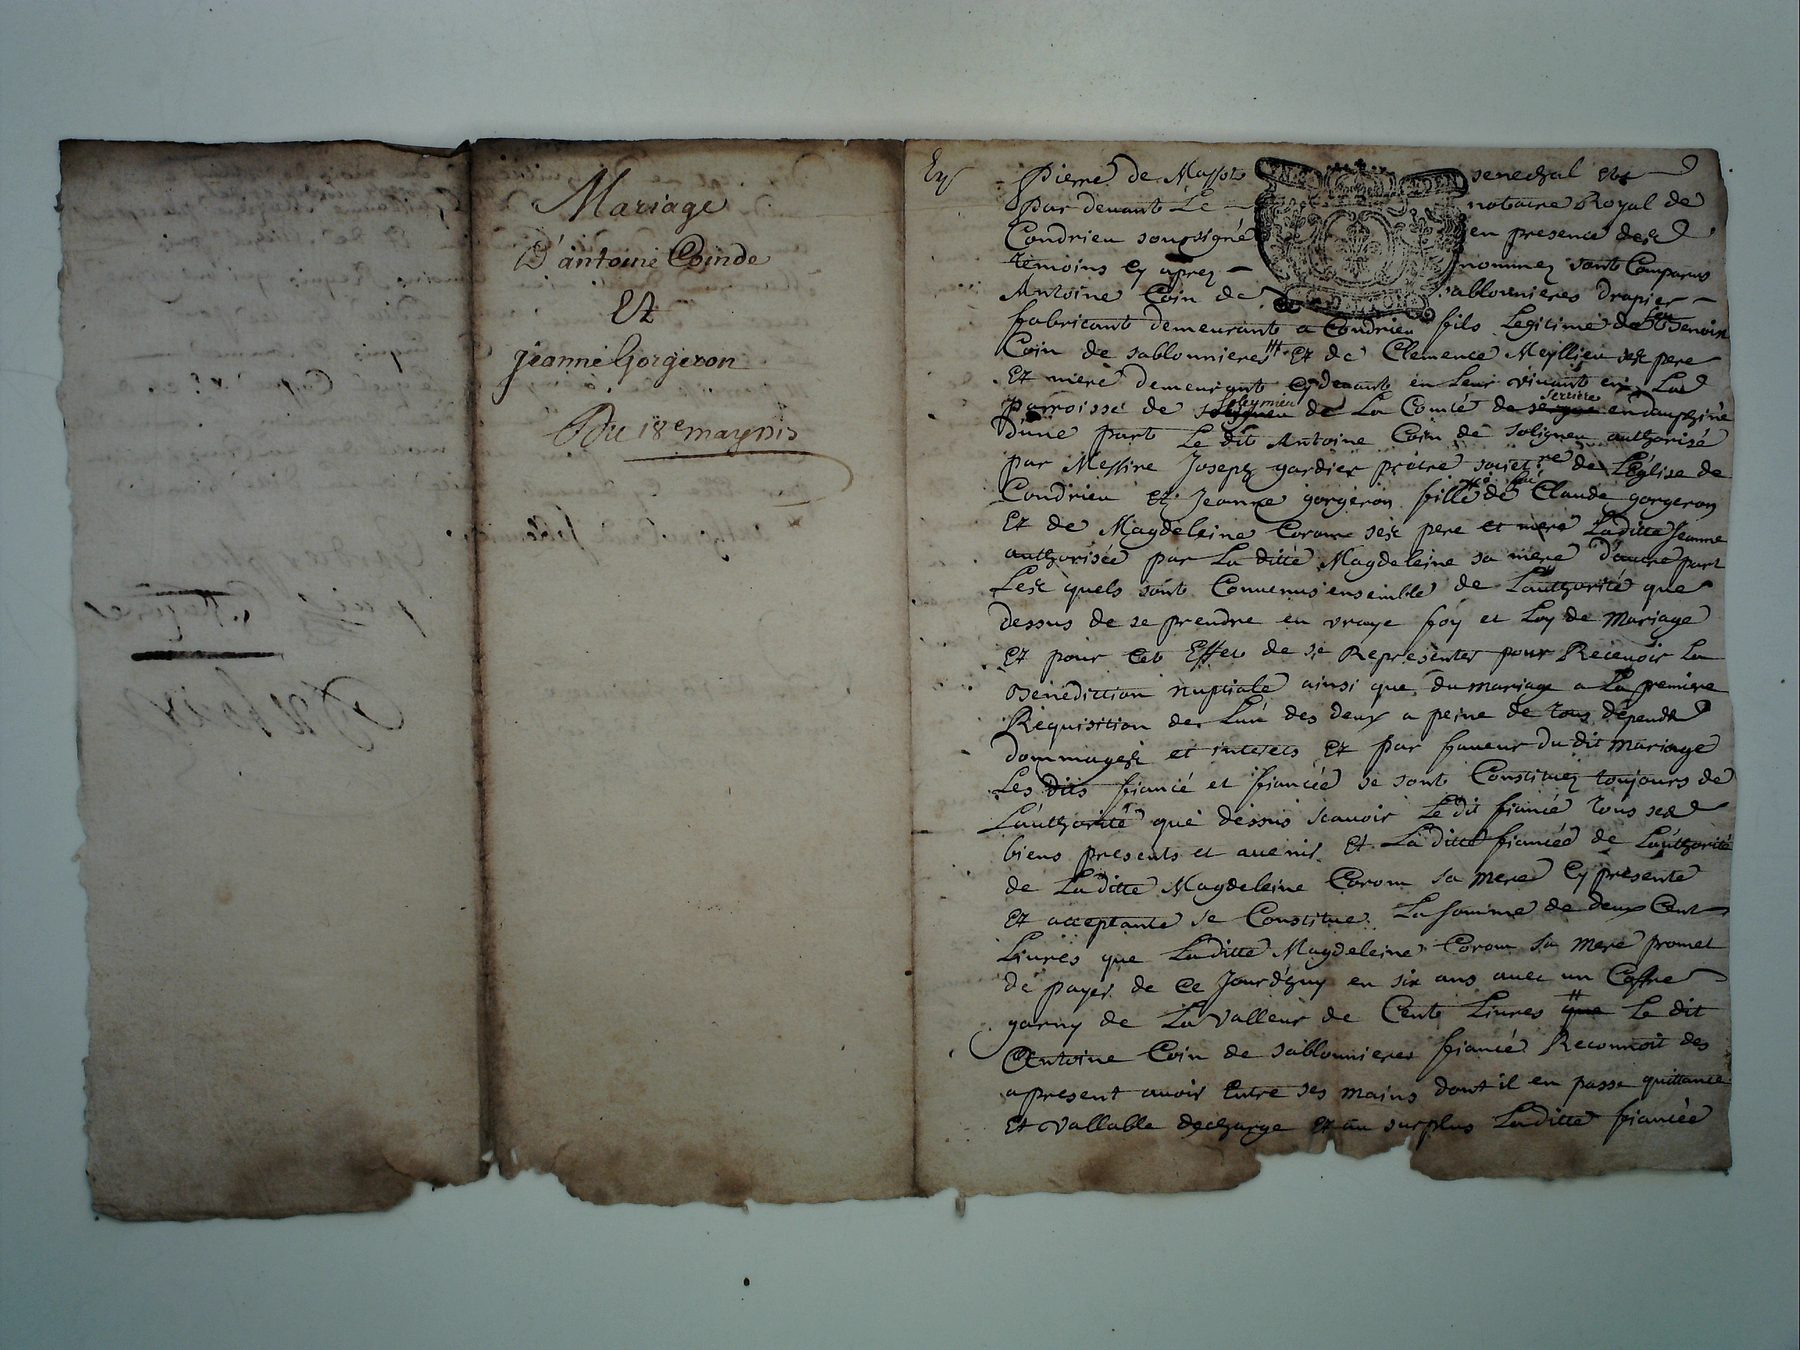 Mariage
D'antoine Coinde
Et
jeanne Gorgeron
Du 18e may
Pierre de Massot senechal etc
par devant Le notaire Royal de
Condrieu soussigné en presence des
temoins cy aprez nommez sont Comparus
Antoine Coin de sablonnieres drapier
fabricant demeurant a Condrieu fils Legitime de feu Benoist
Coin de sablonnieres Et de Clemence Meyllieu ses pere
Et mere demeurant cydevant en Leur vivant en La
parroisse de Soleymieu de La Comté de serriere en dauphiné
dune part Le dit Antoine Coin de soligneu authorisé
par Messire Joseph gardier prêtre societre de L'église de
Condrieu et Jeanne gorgeron fille de Claude gorgeron
Et de Magdeleine Corom ses pere et mere Laditte Jeanne
authorisée par La ditte Magdeleine sa mere d'autre part
Les quels sont Convenus ensemble de Lauthorité que
dessus de se prendre en vraye foy et Loy de Mariage
Et pour cet Effet de se Representer pour Recevoir La
Benediction nuptiale ainsi que du mariage a La premiere
Requisition de Luné des deux a peine de tous dépends
dommages et interets Et par faveur du dit mariage
Les dits fiancé et fiancée se sont Constituez toujours de
L'authorité que dessus scavoir Le dit fiancé tous ses
biens presents et avenir Et La ditte fiancée de L'authorité
de La ditte Magdeleine Corom sa mere Cy présente
Et acceptante se Constitue La somme de deux Cent
Livres que Laditte Magdeleine Corom sa mere promet
de payer de ce Jourd'huy en six ans avec un Coffre
garny de La valleur de Cent Livres que Le dit
Antoine Coin de sablonnieres fiancé Reconnoit des
apresent avoir Entre ses mains dont il en passe quittance
Et vallable decharge Et au surplus Laditte fiancée